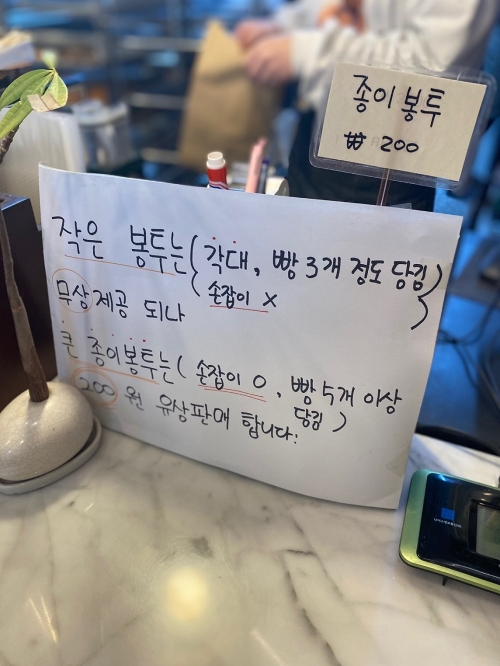 종이봉투
₩ 200
작은 봉투는 ( 각대, 빵 3개 정도 담김
손잡이 X )
무상제공 되나
큰 종이봉투는 ( 손잡이 O, 빵 5개 이상
담김 )
200원 유상판매 합니다.